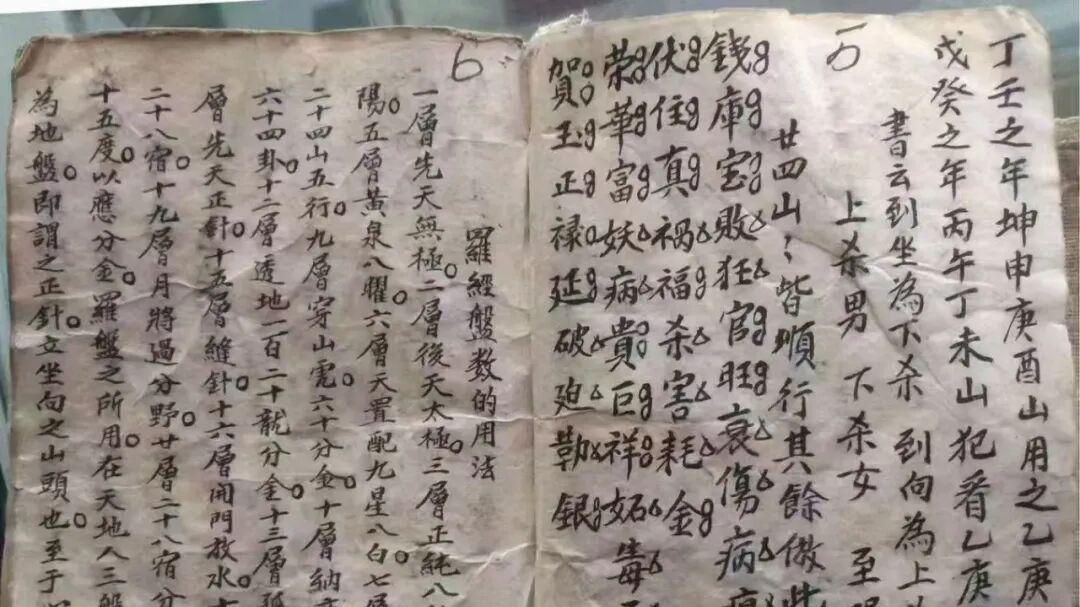 5
丁壬之年坤申庚酉山用之乙庚
戊癸之年丙午丁未山犯看乙庚
書云到坐為下杀 到向為上
上杀男 下杀女 至
廿四山皆順行其餘倣此
錢庫宝敗狂官旺衰傷病
伏住真禍福杀害耗金
荣華富妖病貴巨祥妬毒
賀玉正禄延破廹勒銀
6
羅經盤数的用法
一層先天無極。二層後天太極。三層正純八
陽。五層黃泉八曜。六層天置配九星八白。七層
二十四山五行。九層穿山虎六十分金。十層納
六十四卦。十二層透地一百二十龍分金。十三層
層先天正針。十五層縫針。十六層開門放水。十
二十八宿。十九層月將過分野。廿層二十八宿分
十五度。以應分金。羅盤之所用。在天地人三盤
為地盤。即謂之正針。立坐向之山頭也。至于